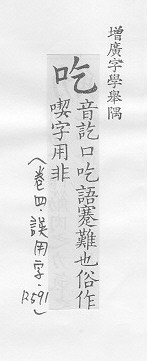 增廣字學舉隅
吃音訖口吃語蹇難也俗作
喫字用非
(卷四誤用字,p.591)